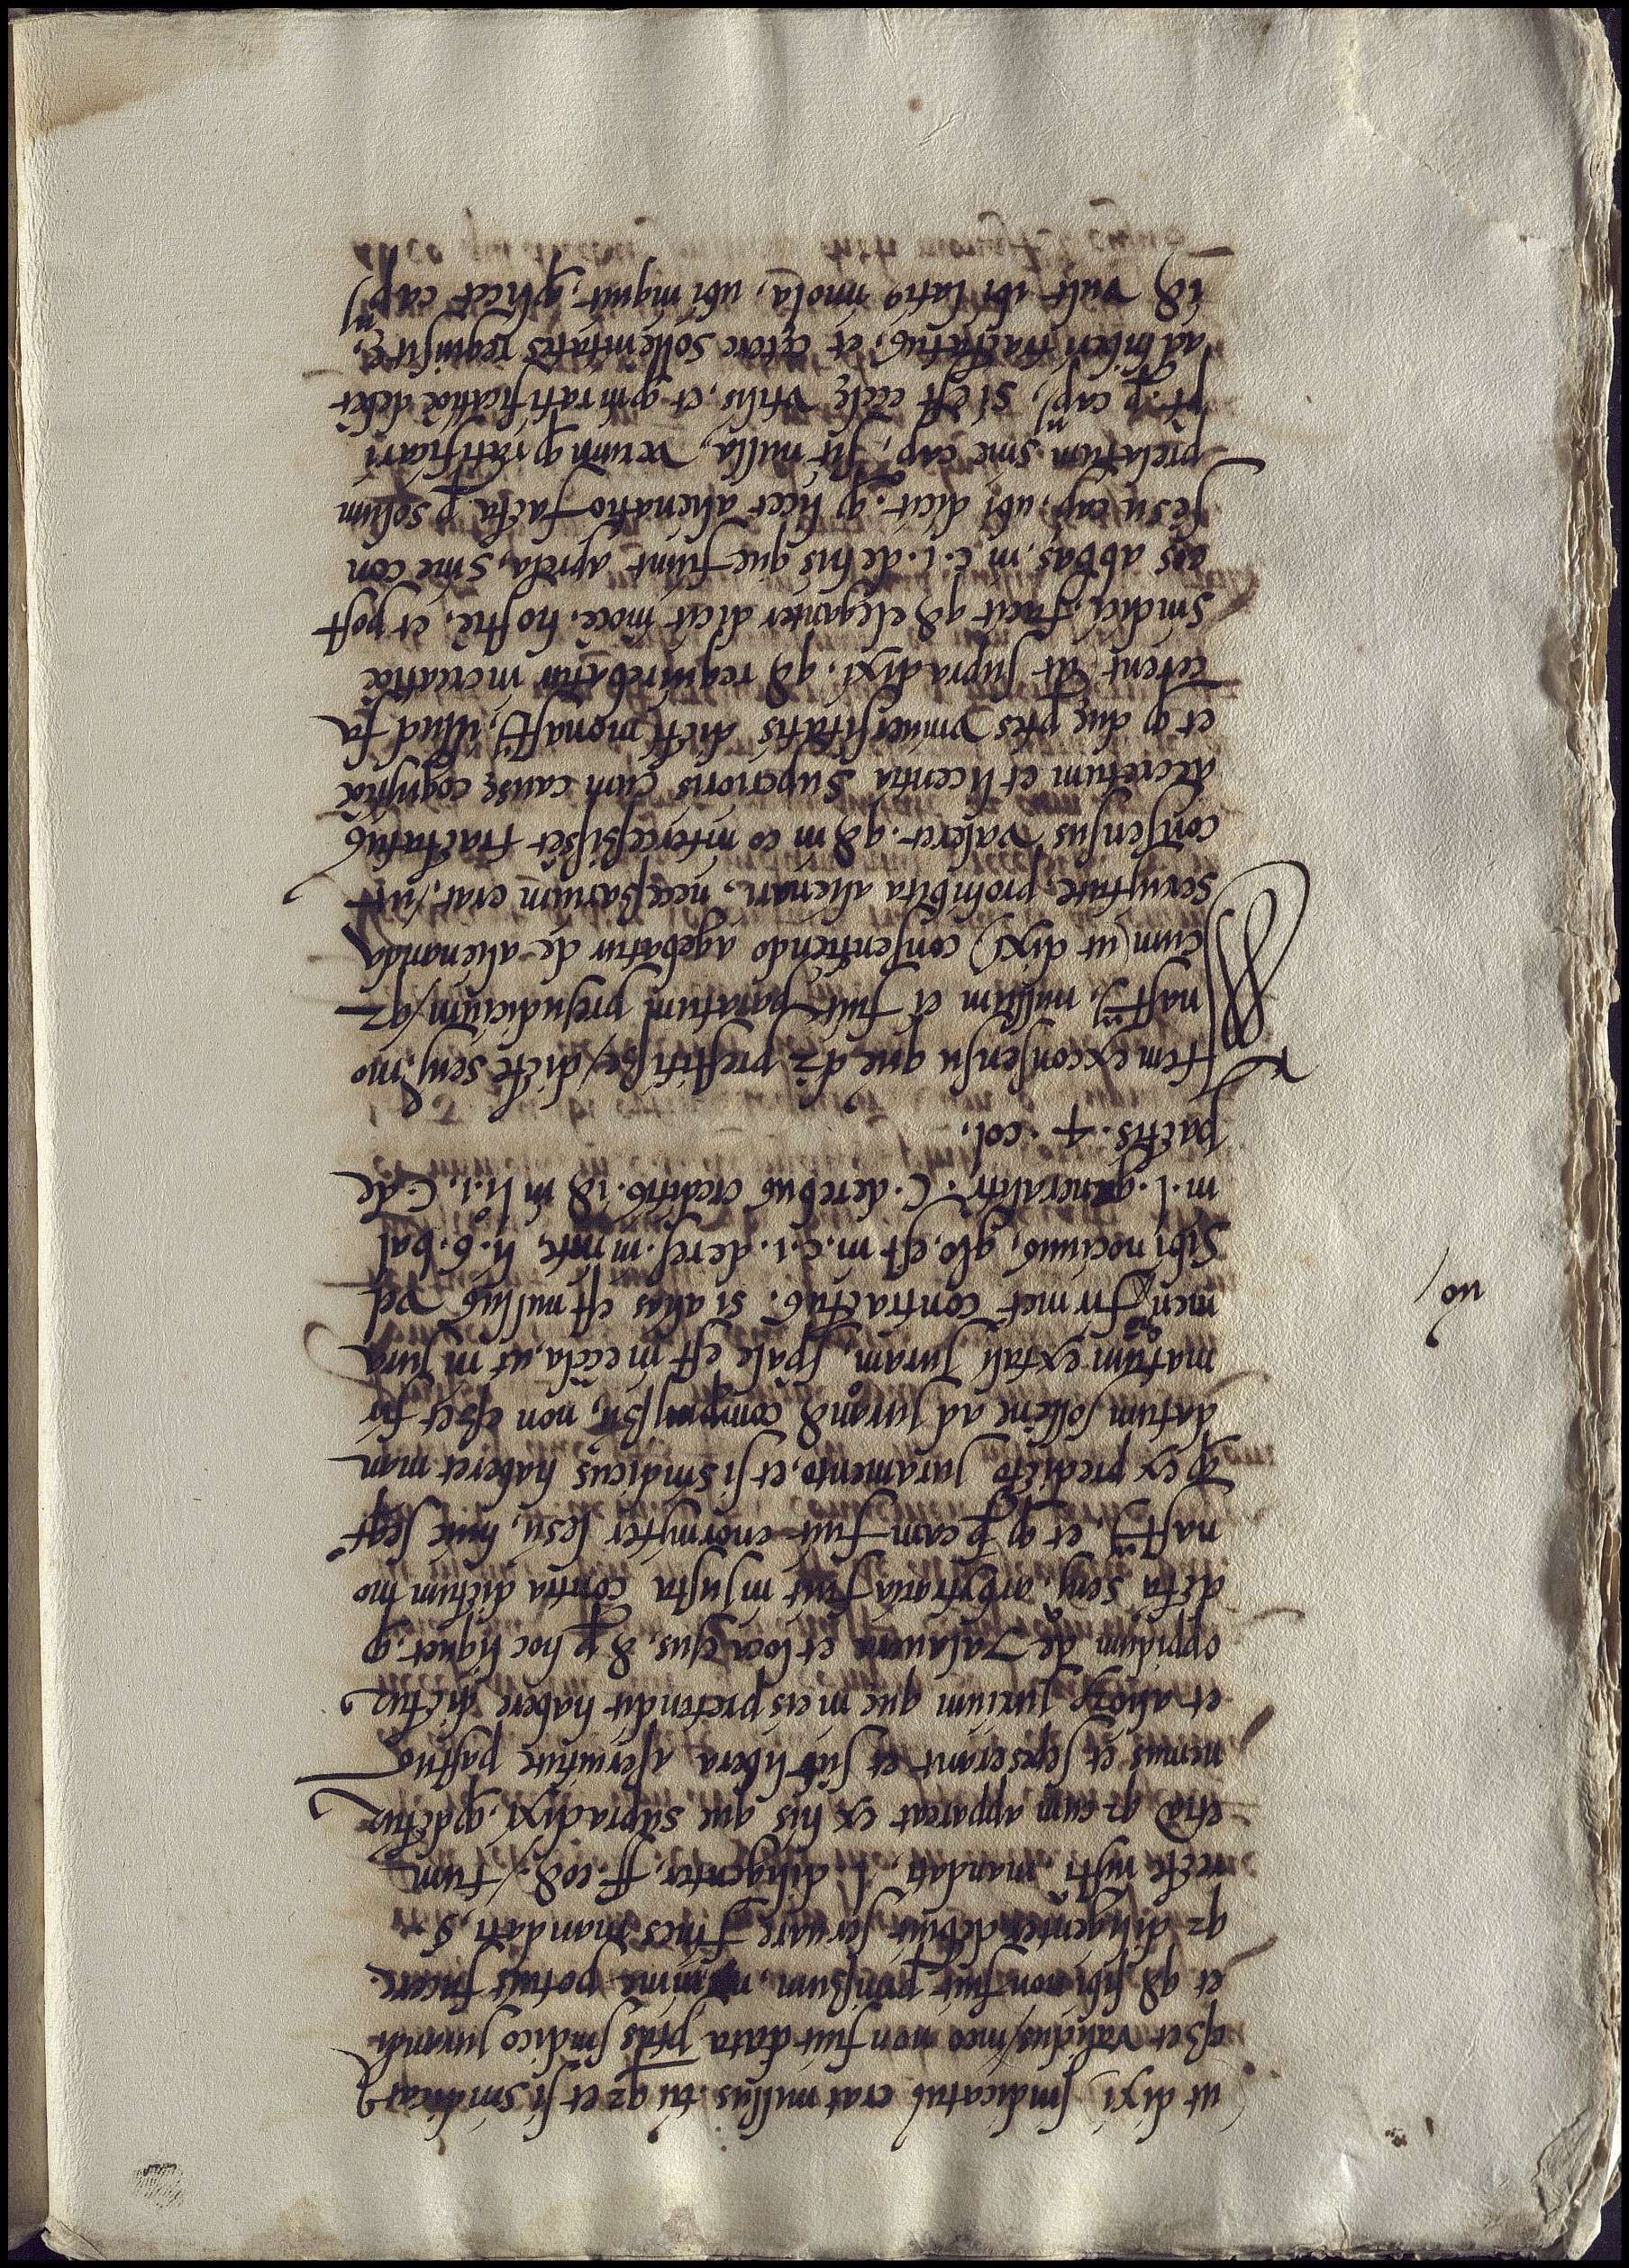 ut dixi, sindicatus erat nullus. tu qz et si sindicat9
esset validus, in eo non fuit data ptās sindico jurandi
et qd sibi non fuit pmissum, minime potuit facere.
qz diligenter debuit servare fines mandati, §.
recte insti. mandati, l. diligenter, ff. eod. / tum
etiā qz cum appareat ex his que supra dixi, q dictu
nemus et serant et sūt libera a servitute pastus
et alioꝝ jurium que in eis pretendit habere dictū
oppidum de Talavera et loca ejus, & p hoc liquet, q
dicta seny, arbitraria fuit injusta contra dictum mo
nastrū, et q p eam fuit enormiter lesū, hinc seqr
q ex predicto juramento, et si sindicus haberet man
datum sollēne ad jurand compromissū, non esset fir
matum ex tali juram, spale est in ecclā, ut in jura
men firmet contractus, si alias est nullus vel
sibi nocivus, glo. est in. c. 1. de res. in inte, li. 6. bal
in. l. generaliter. C. de rebus creditis. id in li. 1. C. de
pactis. 4. col.
Item ex consensu que dz prestitisse, dicte seny, mo
nastrū, nullum ei fuit paratum prejudicium, qz
cum (ut dixi) consentiendo agebatur de alienanda
servitute, prohibita alienari, necessarium erat, ut
consensus valeret. qd in eo intercessisset tractatus
decretum et licentia superioris cum cause cognitiōe
et q due ptes universitatis dicti monastrī, illud fa
cerent ut supra dixi, qd requirebatur in creatiōe
sindici, facit qd eleganter dicit inoce. hostiē. et post
eos abbas, in. c. 1. de his que fiunt a prela. sine con
sēsu cap. ubi dicit. q licet alienatio facta p solum
prelatum sine cap, sit nulla, verum q ratificari
pt. p cap, si est eccłę utilis, et q in ratificatiōe debet
adhiberi tractatus, et cetere sollenitates requisitę,
id vult ibi latio imola, ubi inquit, q licet cap
no/